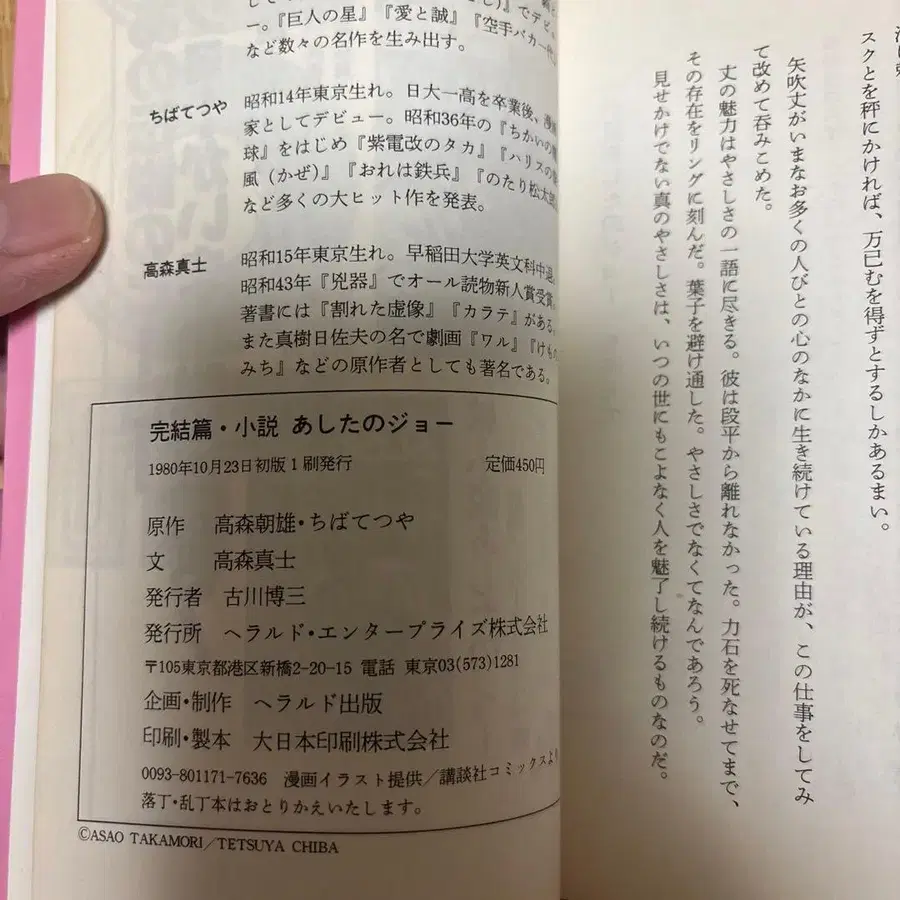 スクとを秤にかければ、万已むを得ずとするしかあるまい。
矢吹丈がいまなお多くの人びとの心のなかに生き続けている理由が、この仕事をしてみ
て改めて呑みこめた。
丈の魅力はやさしさの一語に尽きる。彼は段平から離れなかった。力石を死なせてまで、
その存在をリングに刻んだ。葉子を避け通した。やさしさでなくてなんであろう。
見せかけでない真のやさしさは、いつの世にもこよなく人を魅了し続けるものなのだ。
ー。『巨人の星』『愛と誠』『空手バカ一代
など数々の名作を生み出す。
ちばてつや 昭和14年東京生れ。日大一高を卒業後、漫画
家としてデビュー。昭和36年の『ちかいの
球』をはじめ『紫電改のタカ』『ハリスの
風（かぜ）』『おれは鉄兵』『のたり松太郎
など多くの大ヒット作を発表。
高森真士 昭和15年東京生れ。早稲田大学英文科中退
昭和43年『兇器』でオール読物新人賞受賞
著書には『割れた虚像』『カラテ』がある。
また真樹日佐夫の名で劇画『ワル』『けもの
みち』などの原作者としても著名である。
完結篇・小説 あしたのジョー
1980年10月23日初版1刷発行 定価450円
原作 高森朝雄・ちばてつや
文 高森真士
発行者 古川博三
発行所 ヘラルド・エンタープライズ株式会社
〒105東京都港区新橋2-20-15 電話 東京03(573)1281
企画・制作 ヘラルド出版
印刷・製本 大日本印刷株式会社
0093-801171-7636 漫画イラスト提供／講談社コミックスより
落丁・乱丁本はおとりかえいたします。
©ASAO TAKAMORI／TETSUYA CHIBA